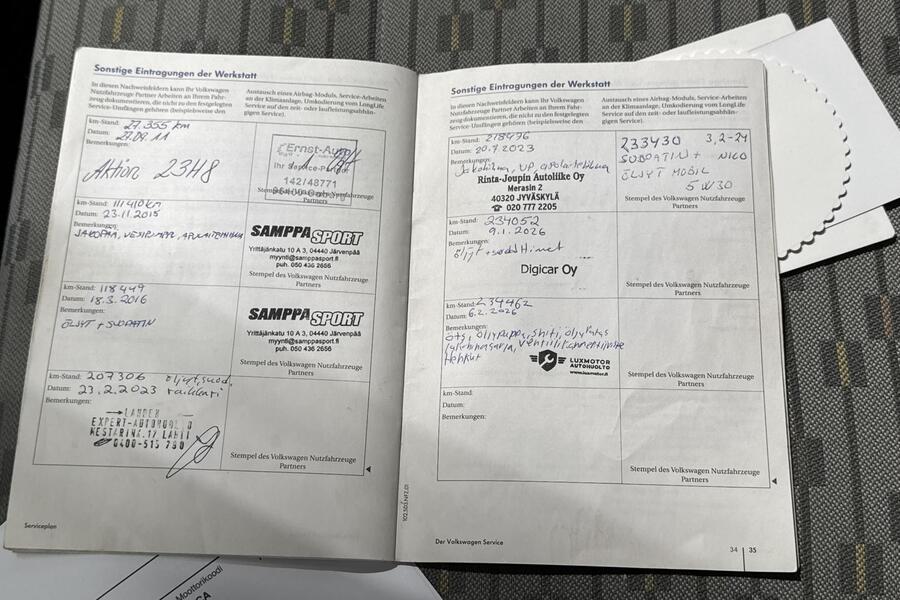 Sonstige Eintragungen der Werkstatt
In diesen Nachweisfeldern kann Ihr Volkswagen
Nutzfahrzeuge Partner Arbeiten an Ihrem Fahr-
zeug dokumentieren, die nicht zu den festgelegten
Service-Umfängen gehören (beispielsweise den
Austausch eines Airbag-Moduls, Service-Arbeiten
an der Klimaanlage, Umkodierung vom LongLife
Service auf den zeit- oder laufleistungsabhän-
gigen Service).
km-Stand: 27.355 km
Datum: 27.09.11
Bemerkungen:
Aktion 23H8
Ernst-Auto
Ihr Service-Partner
142/48771
Stempel des Volkswagen Nutzfahrzeuge
Partners
km-Stand: 111410 km
Datum: 23.11.2015
Bemerkungen:
JAKOPÄÄ, VESIPUMPPU, APULAITEHIHNA
SAMPPA SPORT
Yrittäjänkatu 10 A 3, 04440 Järvenpää
myynti@samppasport.fi
puh. 050 436 2656
Stempel des Volkswagen Nutzfahrzeuge
Partners
km-Stand: 118449
Datum: 18.3.2016
Bemerkungen:
ÖLJYT + SUODATIN
SAMPPA SPORT
Yrittäjänkatu 10 A 3, 04440 Järvenpää
myynti@samppasport.fi
puh. 050 436 2656
Stempel des Volkswagen Nutzfahrzeuge
Partners
km-Stand: 207306
Datum: 23.2.2023
Bemerkungen:
öljyt, suod,
EXPERT-AUTOHUOLTO
KESTARINK. 17 LAHTI
0400-515 790
Stempel des Volkswagen Nutzfahrzeuge
Partners
Serviceplan
Sonstige Eintragungen der Werkstatt
In diesen Nachweisfeldern kann Ihr Volkswagen
Nutzfahrzeuge Partner Arbeiten an Ihrem Fahr-
zeug dokumentieren, die nicht zu den festgelegten
Service-Umfängen gehören (beispielsweise den
Austausch eines Airbag-Moduls, Service-Arbeiten
an der Klimaanlage, Umkodierung vom LongLife
Service auf den zeit- oder laufleistungsabhän-
gigen Service).
km-Stand: 218496
Datum: 20.7.2023
Bemerkungen:
Jakohihna, VP, apulaitehihna
Rinta-Joupin Autoliike Oy
Merasin 2
40320 JYVÄSKYLÄ
☎ 020 777 2205
233430 3,2-24
SUODATIN + NICO
ÖLJYT MOBIL
5W30
Stempel des Volkswagen Nutzfahrzeuge
Partners
km-Stand: 234052
Datum: 9.1.2026
Bemerkungen:
öljyt + suodattimet
Digicar Oy
Stempel des Volkswagen Nutzfahrzeuge
Partners
km-Stand: 234462
Datum: 6.2.2026
Bemerkungen:
öljypumppu,
Hehkut
LUXMOTOR
AUTOHUOLTO
www.luxmotor.fi
Stempel des Volkswagen Nutzfahrzeuge
Partners
km-Stand:
Datum:
Bemerkungen:
Stempel des Volkswagen Nutzfahrzeuge
Partners
102.5D3.NFZ.01
Der Volkswagen Service
34 35
Moottorikoodi
CA